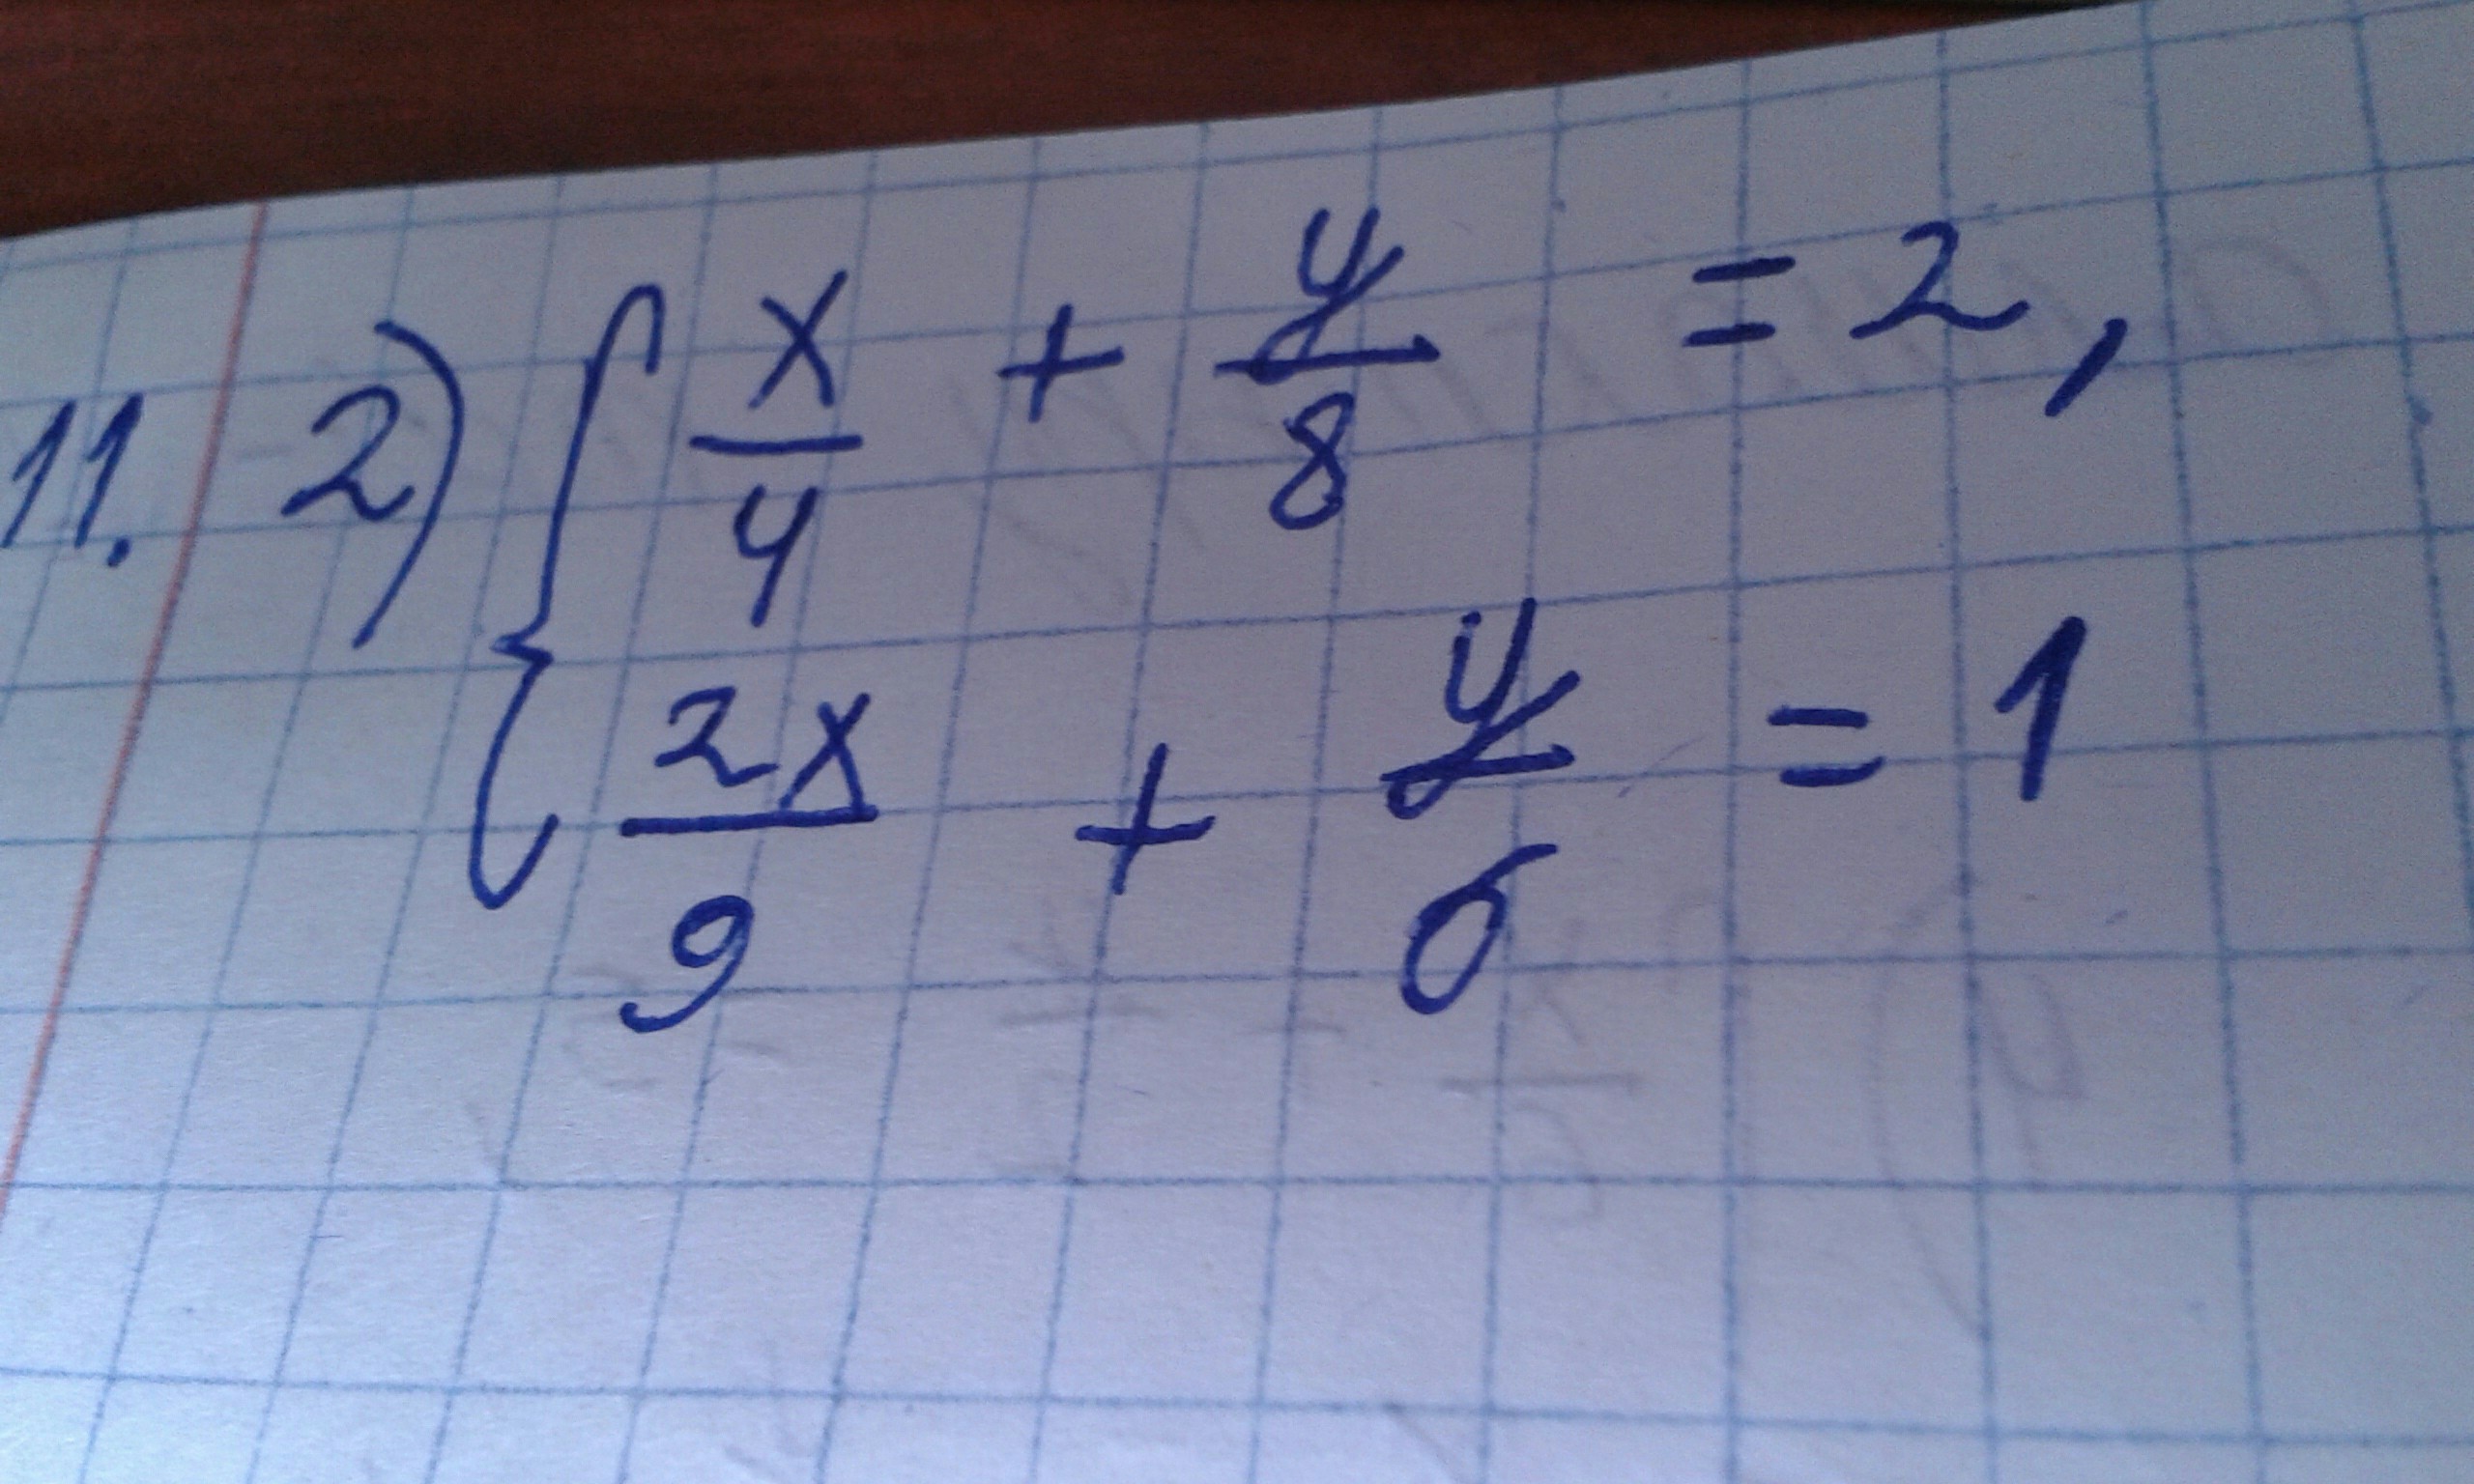 11. 2) { x/4 + y/8 = 2,
2x/9 + y/6 = 1